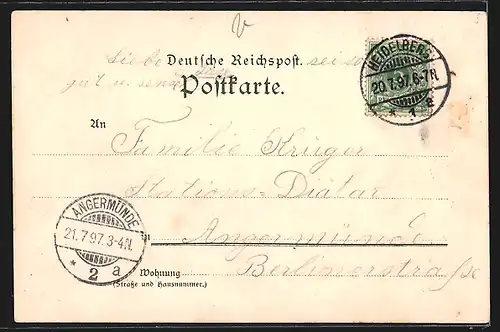 Deutsche Reichspost.
Liebe sei so
gut u. sende
Postkarte.
HEIDELBERG
20.7.97.6-7N.
* 1 a
An
Familie Krüger
Stations-Diätar
Angermünde
Berlinerstraße
ANGERMÜNDE
21.7.97.3-4N.
* 2 a
Wohnung
(Straße und Hausnummer.)